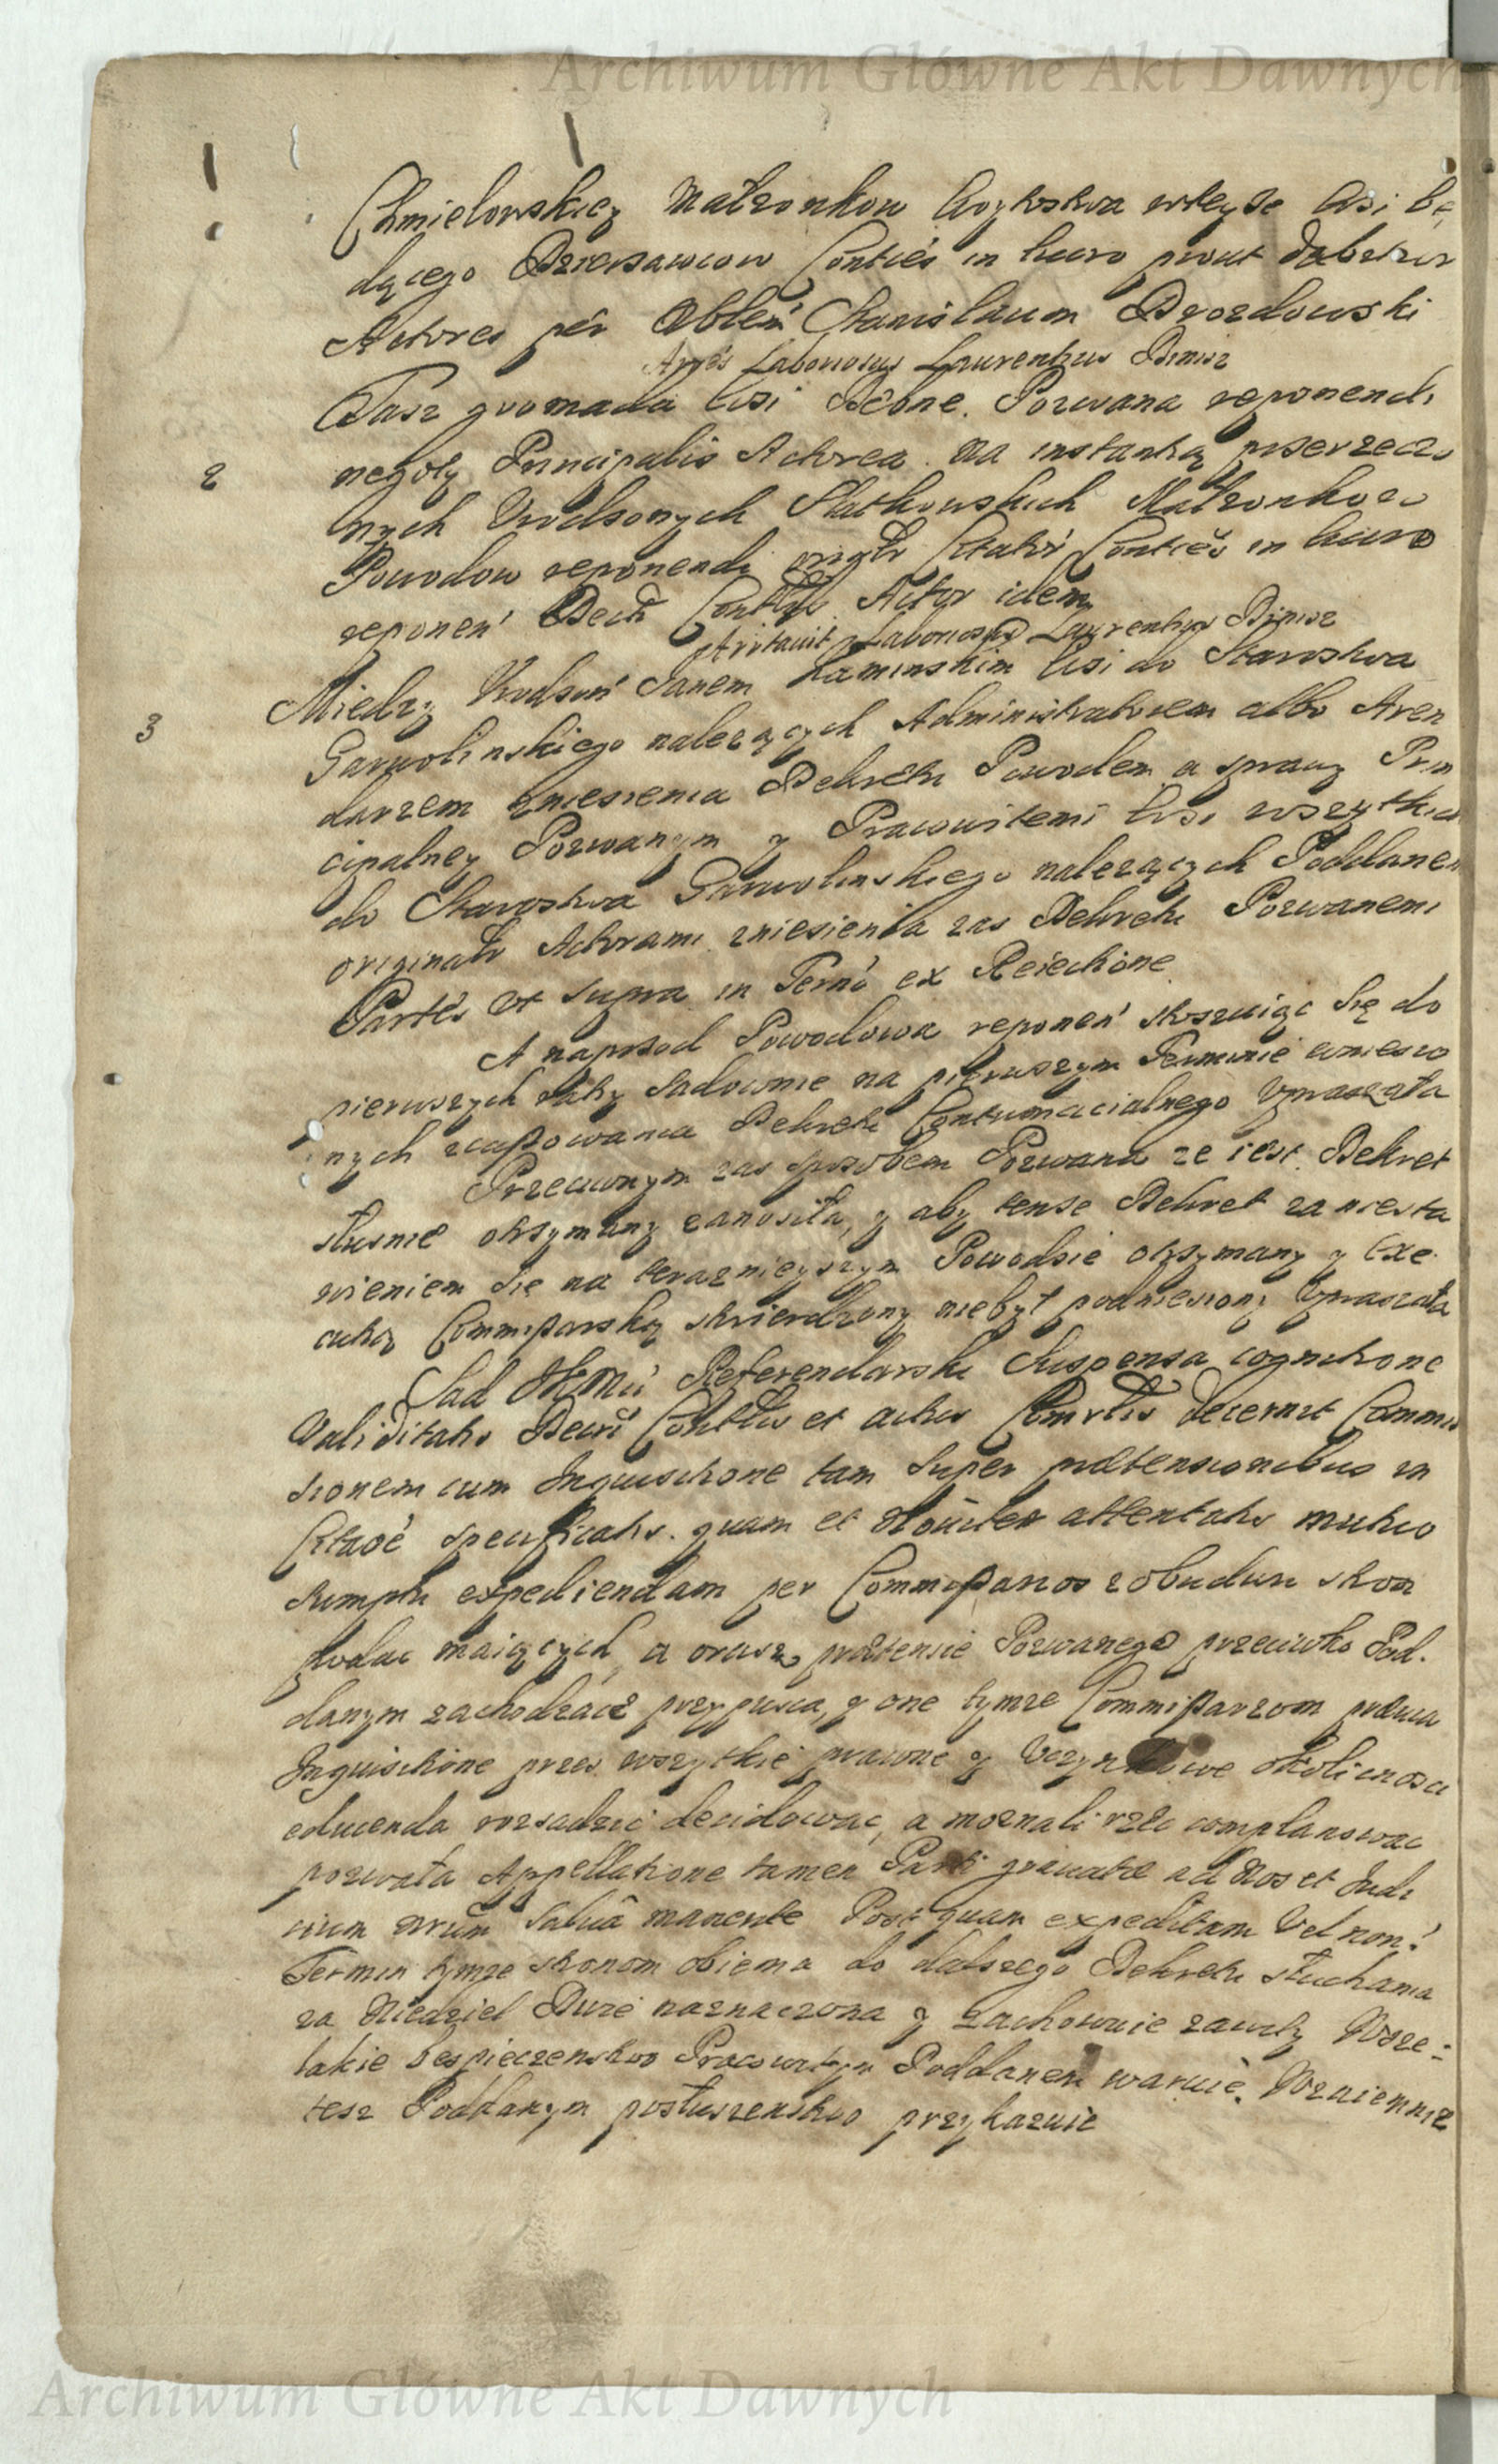 Archiwum Główne Akt Dawnych
Chmielowskiey Małzonkow Woytostwa wteyze Wsi bę
dącego Dzierzawcow Conties in lucro prout
Actores per Nobilem Stanislaum Drozdowski
Laboriosus Laurentius Binisz
Tasz gromada Wsi Dębne. Pozwana reponendi
2 negoty Principalis Actorea. Na instantią przerzeczo
nych Urodzonych Małzonkow
Powodow reponendi Conties in lucro
reponen Decti Actor idem
Laboriosus Laurentius Binisz
3 Miedzy Urodzon Janem Kaminskim Wsi do Starostwa
Garwolinskiego nalezących Administratorem albo Aren
darzem zniesienia Dekretu Powodem a sprawy Prin
cipalney Pozwanym y Pracowitemi Wsi wszytkich
do Starostwa Garwolinskiego nalezących Poddanemi
Actorami zniesienia zas Dekretu Pozwanemi
Partes ut supra in Termo ex Reiectione
A naprzod Powodowa reponen stoszuiąc się do
pierwszych Sadownie na pierwszym Terminie wniesio
nych zcassowania Dekretu Contumacialnego Upraszała
Przeciwnym zas sposobem Pozwana ze iest Dekret
słusznie otrzymany zanosiła, y aby tenze Dekret za niesta
wieniem się na teraznieyszym Powodzie otrzymany y Exe
cutią Commissarską stwierdzony niebył podniesiony Upraszała
Sad JKMci Referendarski Suspensa cognitione
Validitatis Decti et actus decernit Commis
sionem cum Inquisitione tam super prætensionibus in
specificatis. quam et attentatis mutuo
sumptu expediendam per Commissarios zobudwu stron
podac maiących, a orasz prætensie Pozwanego przeciwko Pod.
danym zachodzące przypusca, y one tymze Commissarzom prævia
Inquisitione przes wszytkie prawne y okolicznosci
educenda rozsadzic decidowac, a moznali rzecz complanowac
pozwala Appellatione tamen Parti gravatæ ad Nos et Judi
cium nrum salva manente Post quam expeditam Vel non
Termin tymze stronom obiema do dalszego Dekretu słuchania
za Niedziel Dwie naznaczona y zachowuie zawzdy Wsze=
lakie bespieczenstwo Pracowitym Poddanem waruie. Wzaiemnie
tesz Poddanym posłuszenstwo przykazuie
Archiwum Główne Akt Dawnych